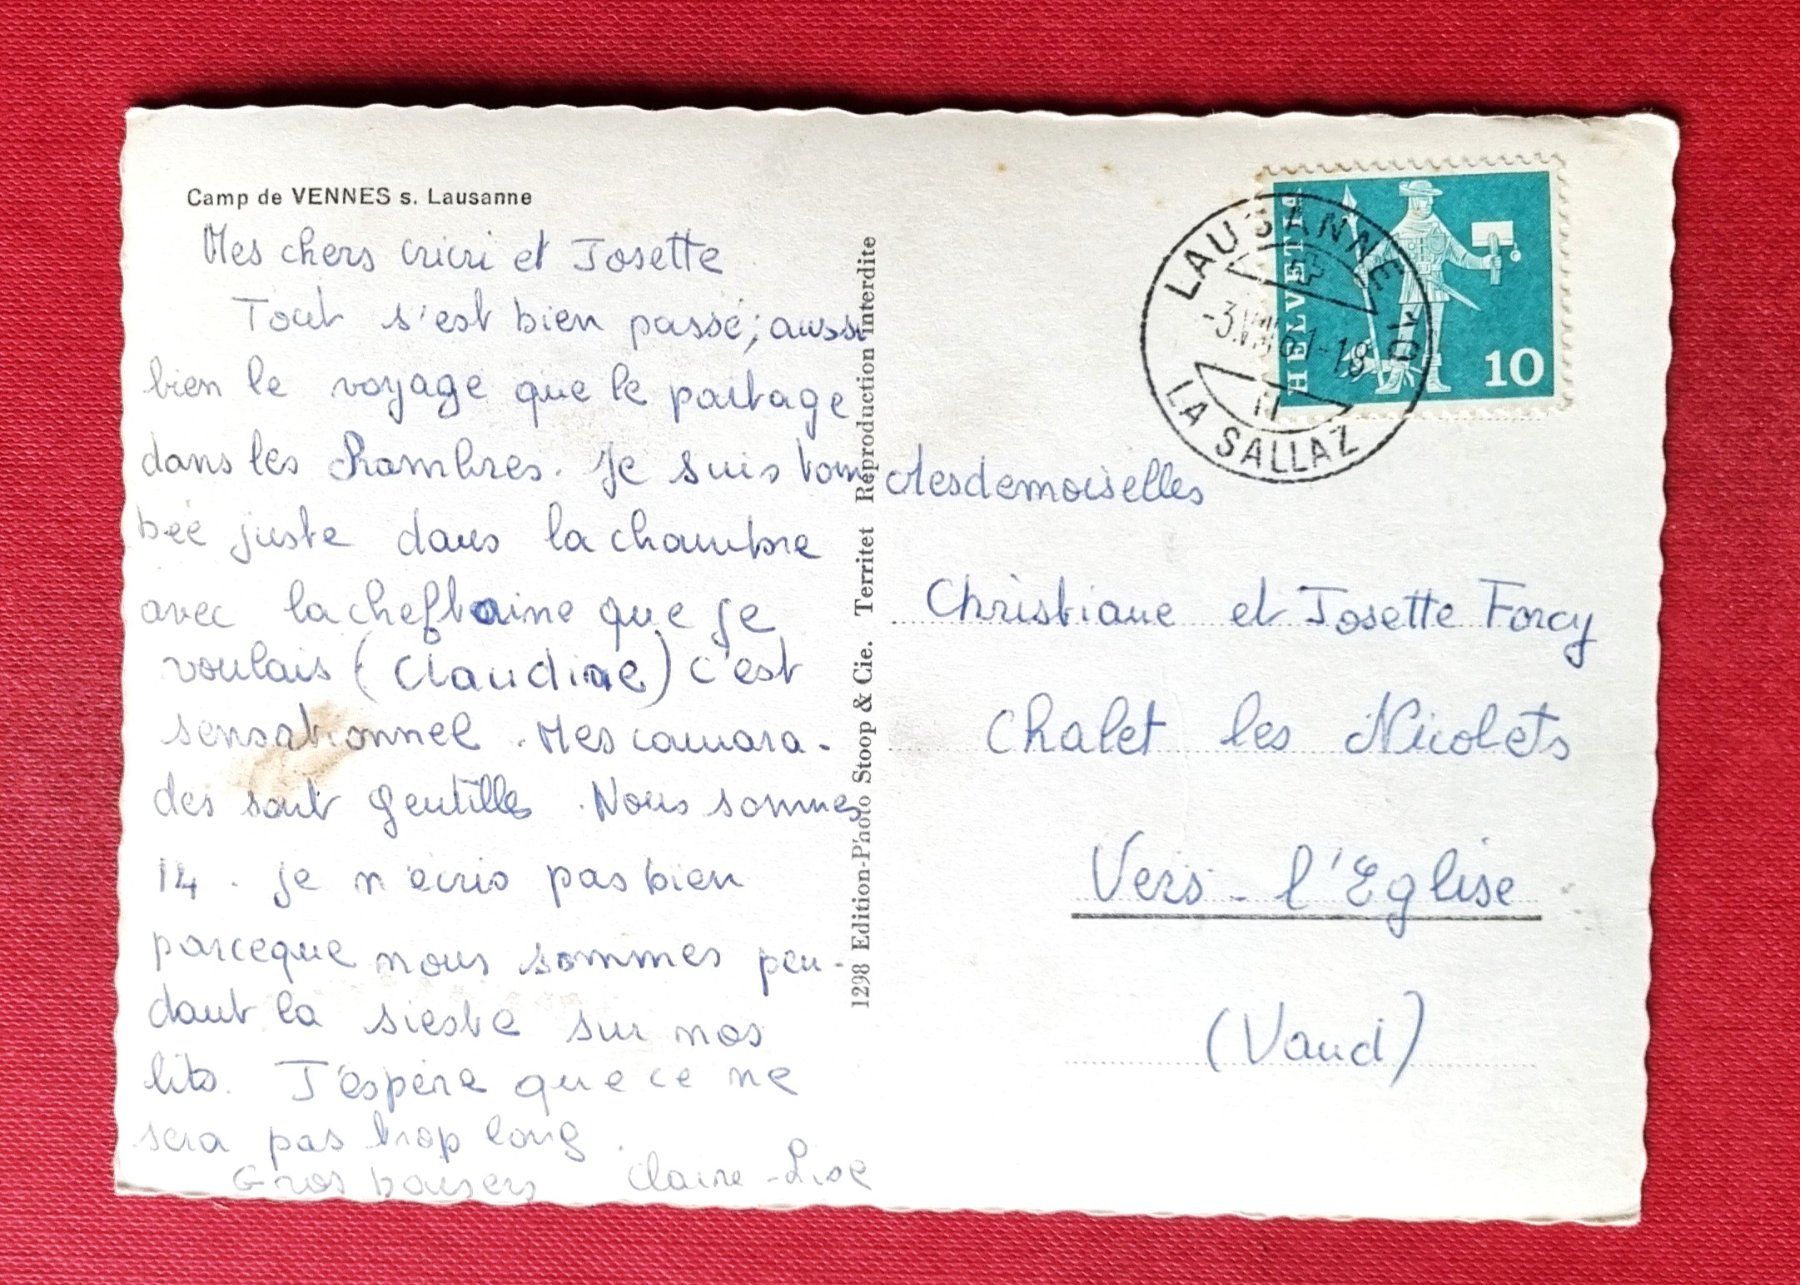 Camp de VENNES s. Lausanne
Mes chers cricri et Josette
Tout s'est bien passé; aussi
bien le voyage que le partage
dans les chambres. Je suis tom
bée juste dans la chambre
avec la cheftaine que je
voulais (Claudine) c'est
sensationnel. Mes camara-
des sont gentilles. Nous sommes
14. Je n'écris pas bien
parceque nous sommes pen-
dant la sieste sur nos
lits. J'espère que ce ne
sera pas trop long.
Gros baisers Claire-Lise
1298 Edition-Photo Stoop & Cie. Territet Reproduction interdite
HELVETIA
10
LAUSANNE 10
-3.VIII.61-18
LA SALLAZ
Mesdemoiselles
Christiane et Josette Forcy
Chalet les Nicolets
Vers-l'Eglise
(Vaud)